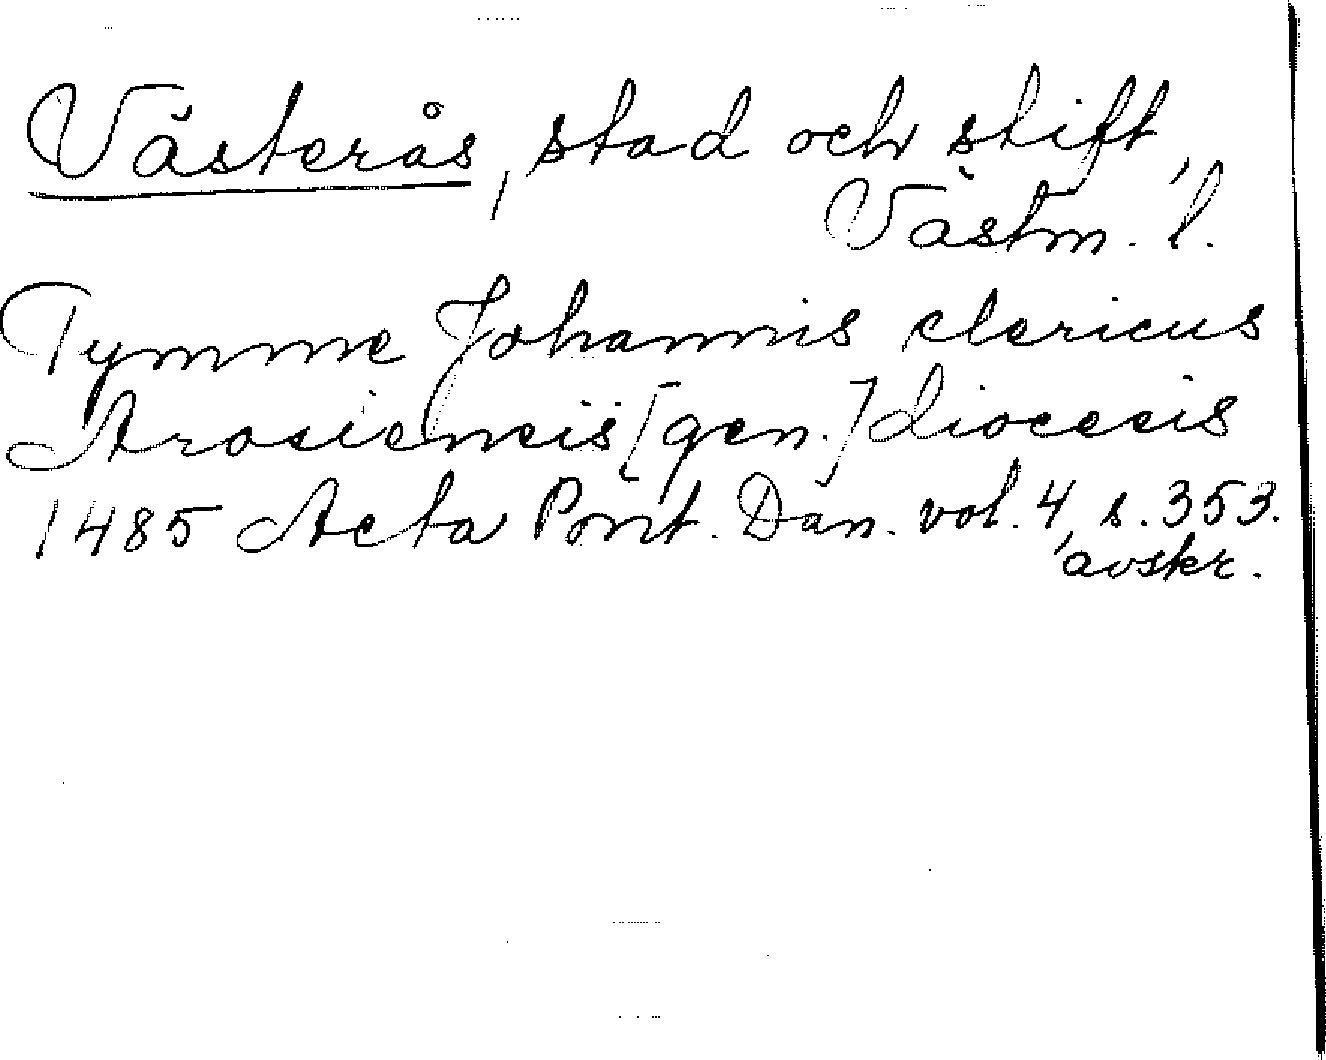 Västerås, stad och stift,
Västm. l.
Tymme Johannis clericus
Arosiensis [gen.] diocesis
1485 Acta Pont. Dan. vol. 4, s. 353.
avskr.